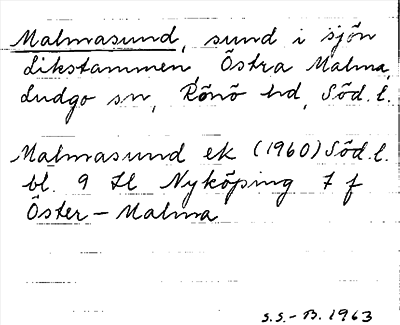 Malmasund, sund i sjön
Likstammen, Östra Malma,
Ludgo sn, Rönö hd, Söd. l.
Malmasund ek (1960) Söd. l.
bl. 9 H Nyköping 7 f
Öster-Malma
S.S.-B. 1963